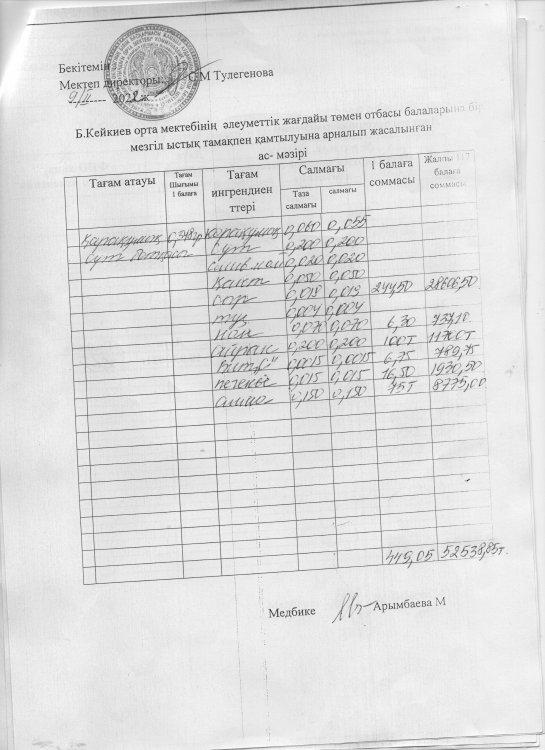 Бекітемін
Мектеп директоры: С.М Тулегенова
9/II 2022ж
Б.Кейкиев орта мектебінің әлеуметтік жағдайы төмен отбасы балаларына бір
мезгіл ыстық тамақпен қамтылуына арналып жасалынған
ас- мәзірі
Тағам атауы Тағам Шығымы 1 балаға Тағам ингрендиен ттері Салмағы 1 балаға соммасы Жалпы 117 балаға соммасы
Таза салмағы салмағы
Қарақұмық 0,348гр қарақұмық 0,060 0,055
Сүт ботқасы Сүт 0,200 0,200
слив май 0,020 0,020
Қант 0,050 0,050
сыр 0,019 0,019 244,50 28606,50
тұз 0,004 0,004
нан 0,070 0,070 6,30 737,10
айран 0,200 0,200 100т 11700т
Вит "С" 0,0015 0,0015 6,75 789,75
печенье 0,015 0,015 16,50 1930,50
алма 0,150 0,150 75т 8775,00
449,05 52538,85т.
Медбике Арымбаева М